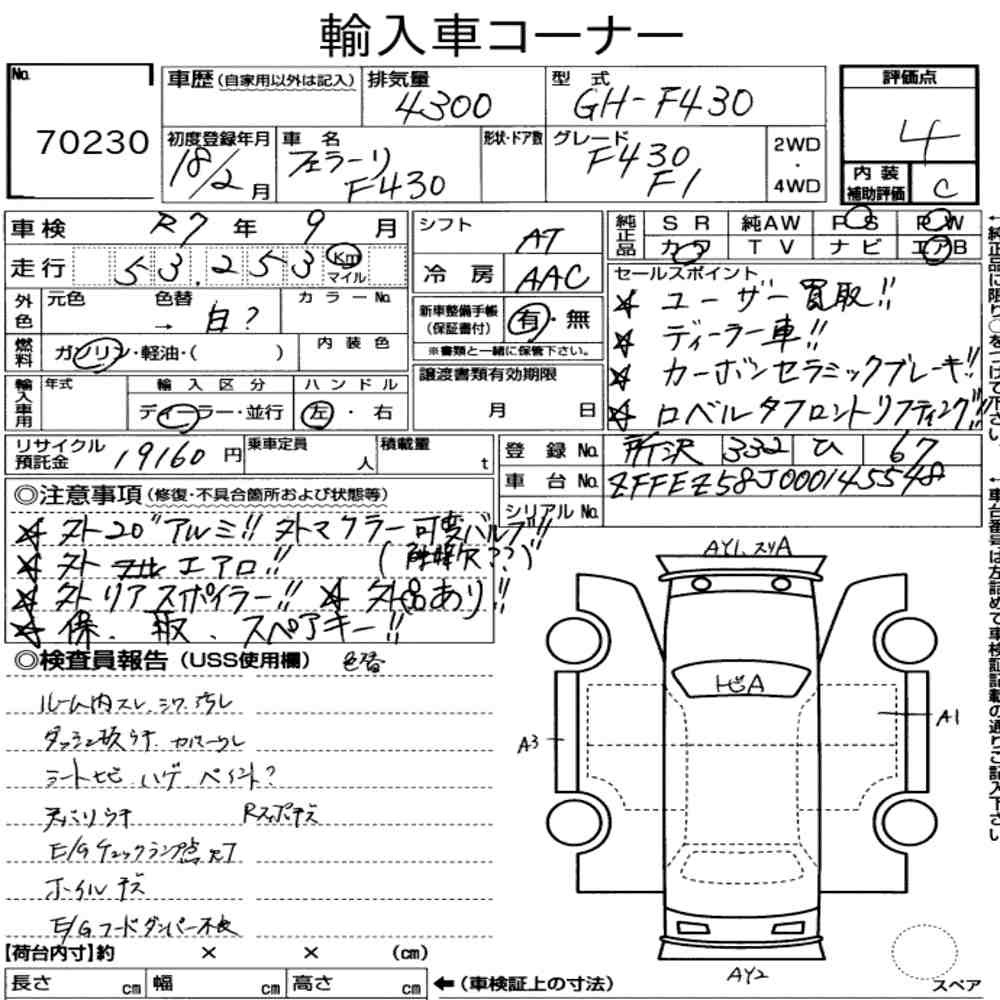 輸入車コーナー
No. 70230
車歴(自家用以外は記入) 排気量 4300 型式 GH-F430 評価点 4
初度登録年月 18/2月 車名 フェラーリ F430 形状・ドア数 グレード F430 F1 2WD・4WD
内装補助評価 C
車検 R7年 9月 シフト AT 純正品 SR 純AW PS PW
走行 53,253 Km マイル 冷房 AAC カワ TV ナビ エアB
外色 元色 色替 → 白? カラーNo. 新車整備手帳(保証書付) 有・無 セールスポイント
※書類と一緒に保管下さい。
☆ ユーザー買取!!
☆ ディーラー車!!
☆ カーボンセラミックブレーキ!!
☆ ロベルタフロントリフティング!!
燃料 ガソリン・軽油・( ) 内装色
輸入車用 年式 輸入区分 ディーラー・並行 ハンドル 左・右 譲渡書類有効期限 月 日
リサイクル預託金 19160円 乗車定員 人 積載量 t 登録No. 所沢 332 ひ 67
車台No. ZFFEZ58J000145548
シリアルNo.
◎注意事項(修復・不具合箇所および状態等)
☆ 外20"アルミ!! 外マフラー可変バルブ!!
☆ 外エアロ!!
☆ 外リアスポイラー!! ☆ 外品あり!!
☆ 保、取、スペアキー!!
◎検査員報告(USS使用欄) 色替
ルーム内スレ、シワ、汚レ
シートヒビ、ハゲ、ペイント?
天バリウキ Rスポキズ
E/Gチェックランプ点灯
ホイルキズ
E/Gフードダンパー不良
AY1、スリA
トビA
A3
A1
AY2
【荷台内寸】約 × × (cm)
長さ cm 幅 cm 高さ cm ←(車検証上の寸法)
スペア
←純正品に限り○をつけて下さい。
←車台番号は左詰めで車検証記載の通りご記入下さい